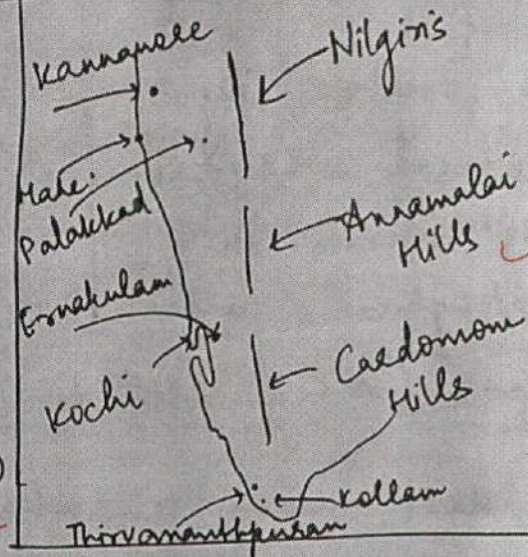 Kannanore
Nilgiris
Mahe.
Palakkad
Annamalai
Hills
Ernakulam
Kochi
Cardomom
Hills
Kollam
Thirvananthpuram